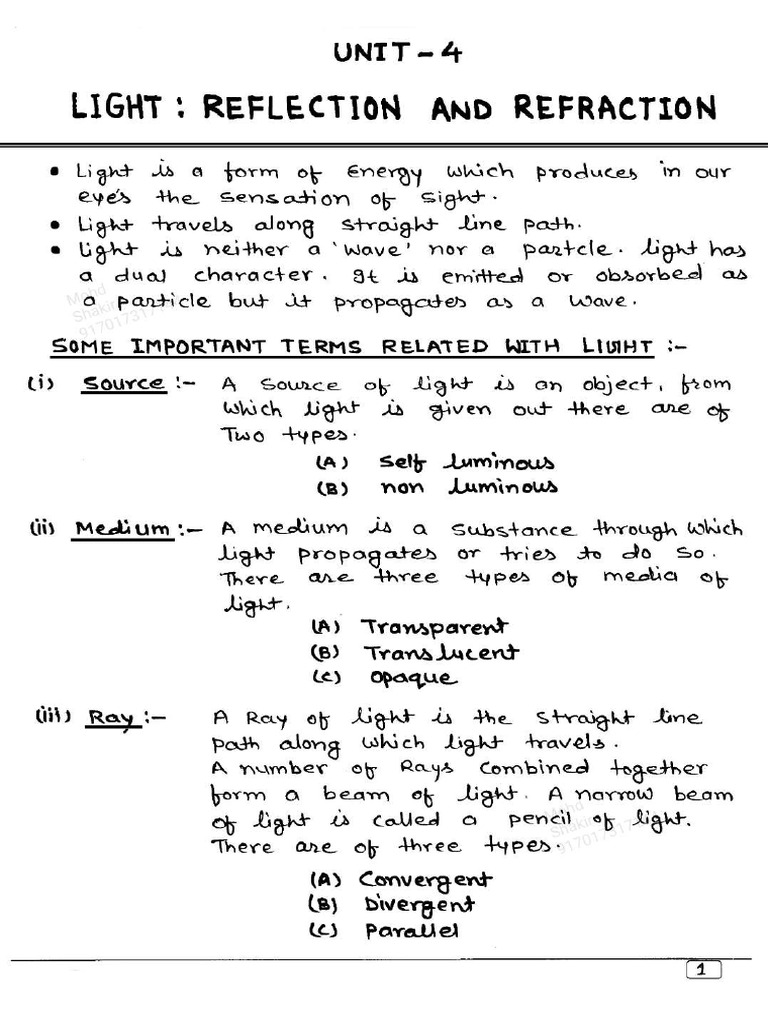 UNIT - 4
LIGHT : REFLECTION AND REFRACTION
• Light is a form of Energy which produces in our
eye's the sensation of sight.
• Light travels along straight line path.
• Light is neither a 'wave' nor a partcle. light has
a dual character. It is emitted or absorbed as
a particle but it propagates as a wave.
Mohd
Shakir
917017317
SOME IMPORTANT TERMS RELATED WITH LIGHT :-
(i) Source :- A source of light is an object, from
which light is given out there are of
Two types.
(A) Self luminous
(B) non luminous
(ii) Medium :- A medium is a substance through which
light propagates or tries to do so.
There are three types of media of
light.
(A) Transparent
(B) Translucent
(C) opaque
(iii) Ray :- A Ray of light is the straight line
path along which light travels.
A number of Rays combined together
form a beam of light. A narrow beam
of light is called a pencil of light.
There are of three types.
Mohd
Shakir
917017317
(A) Convergent
(B) Divergent
(C) Parallel
1